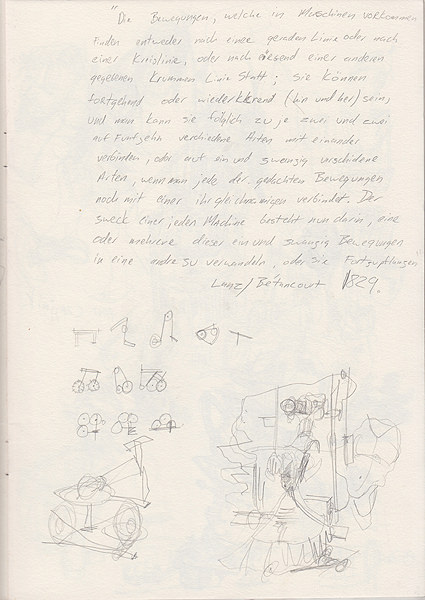 "Die Bewegungen, welche in Maschinen vorkommen
finden entweder nach einer geraden Linie oder nach
einer Kreislinie, oder nach irgend einer anderen
gegebenen Krummen Linie Statt; sie können
fortgehend oder wiederkehrend (hin und her) sein,
und man kann sie folglich zu je zwei und zwei
auf Funfzehn verschiedene Arten mit einander
verbinden, oder auf ein und zwanzig verschidene
Arten, wenn man jede der gedachten Bewegungen
noch mit einer ihr gleichnamigen verbindet. Der
zweck einer jeden Machine besteht nun darin, eine
oder mehrere dieser ein und zwanzig Bewegungen
in eine andre zu verwandeln, oder sie Fortzupflanzen"
Lanz/Bétancourt 1829.